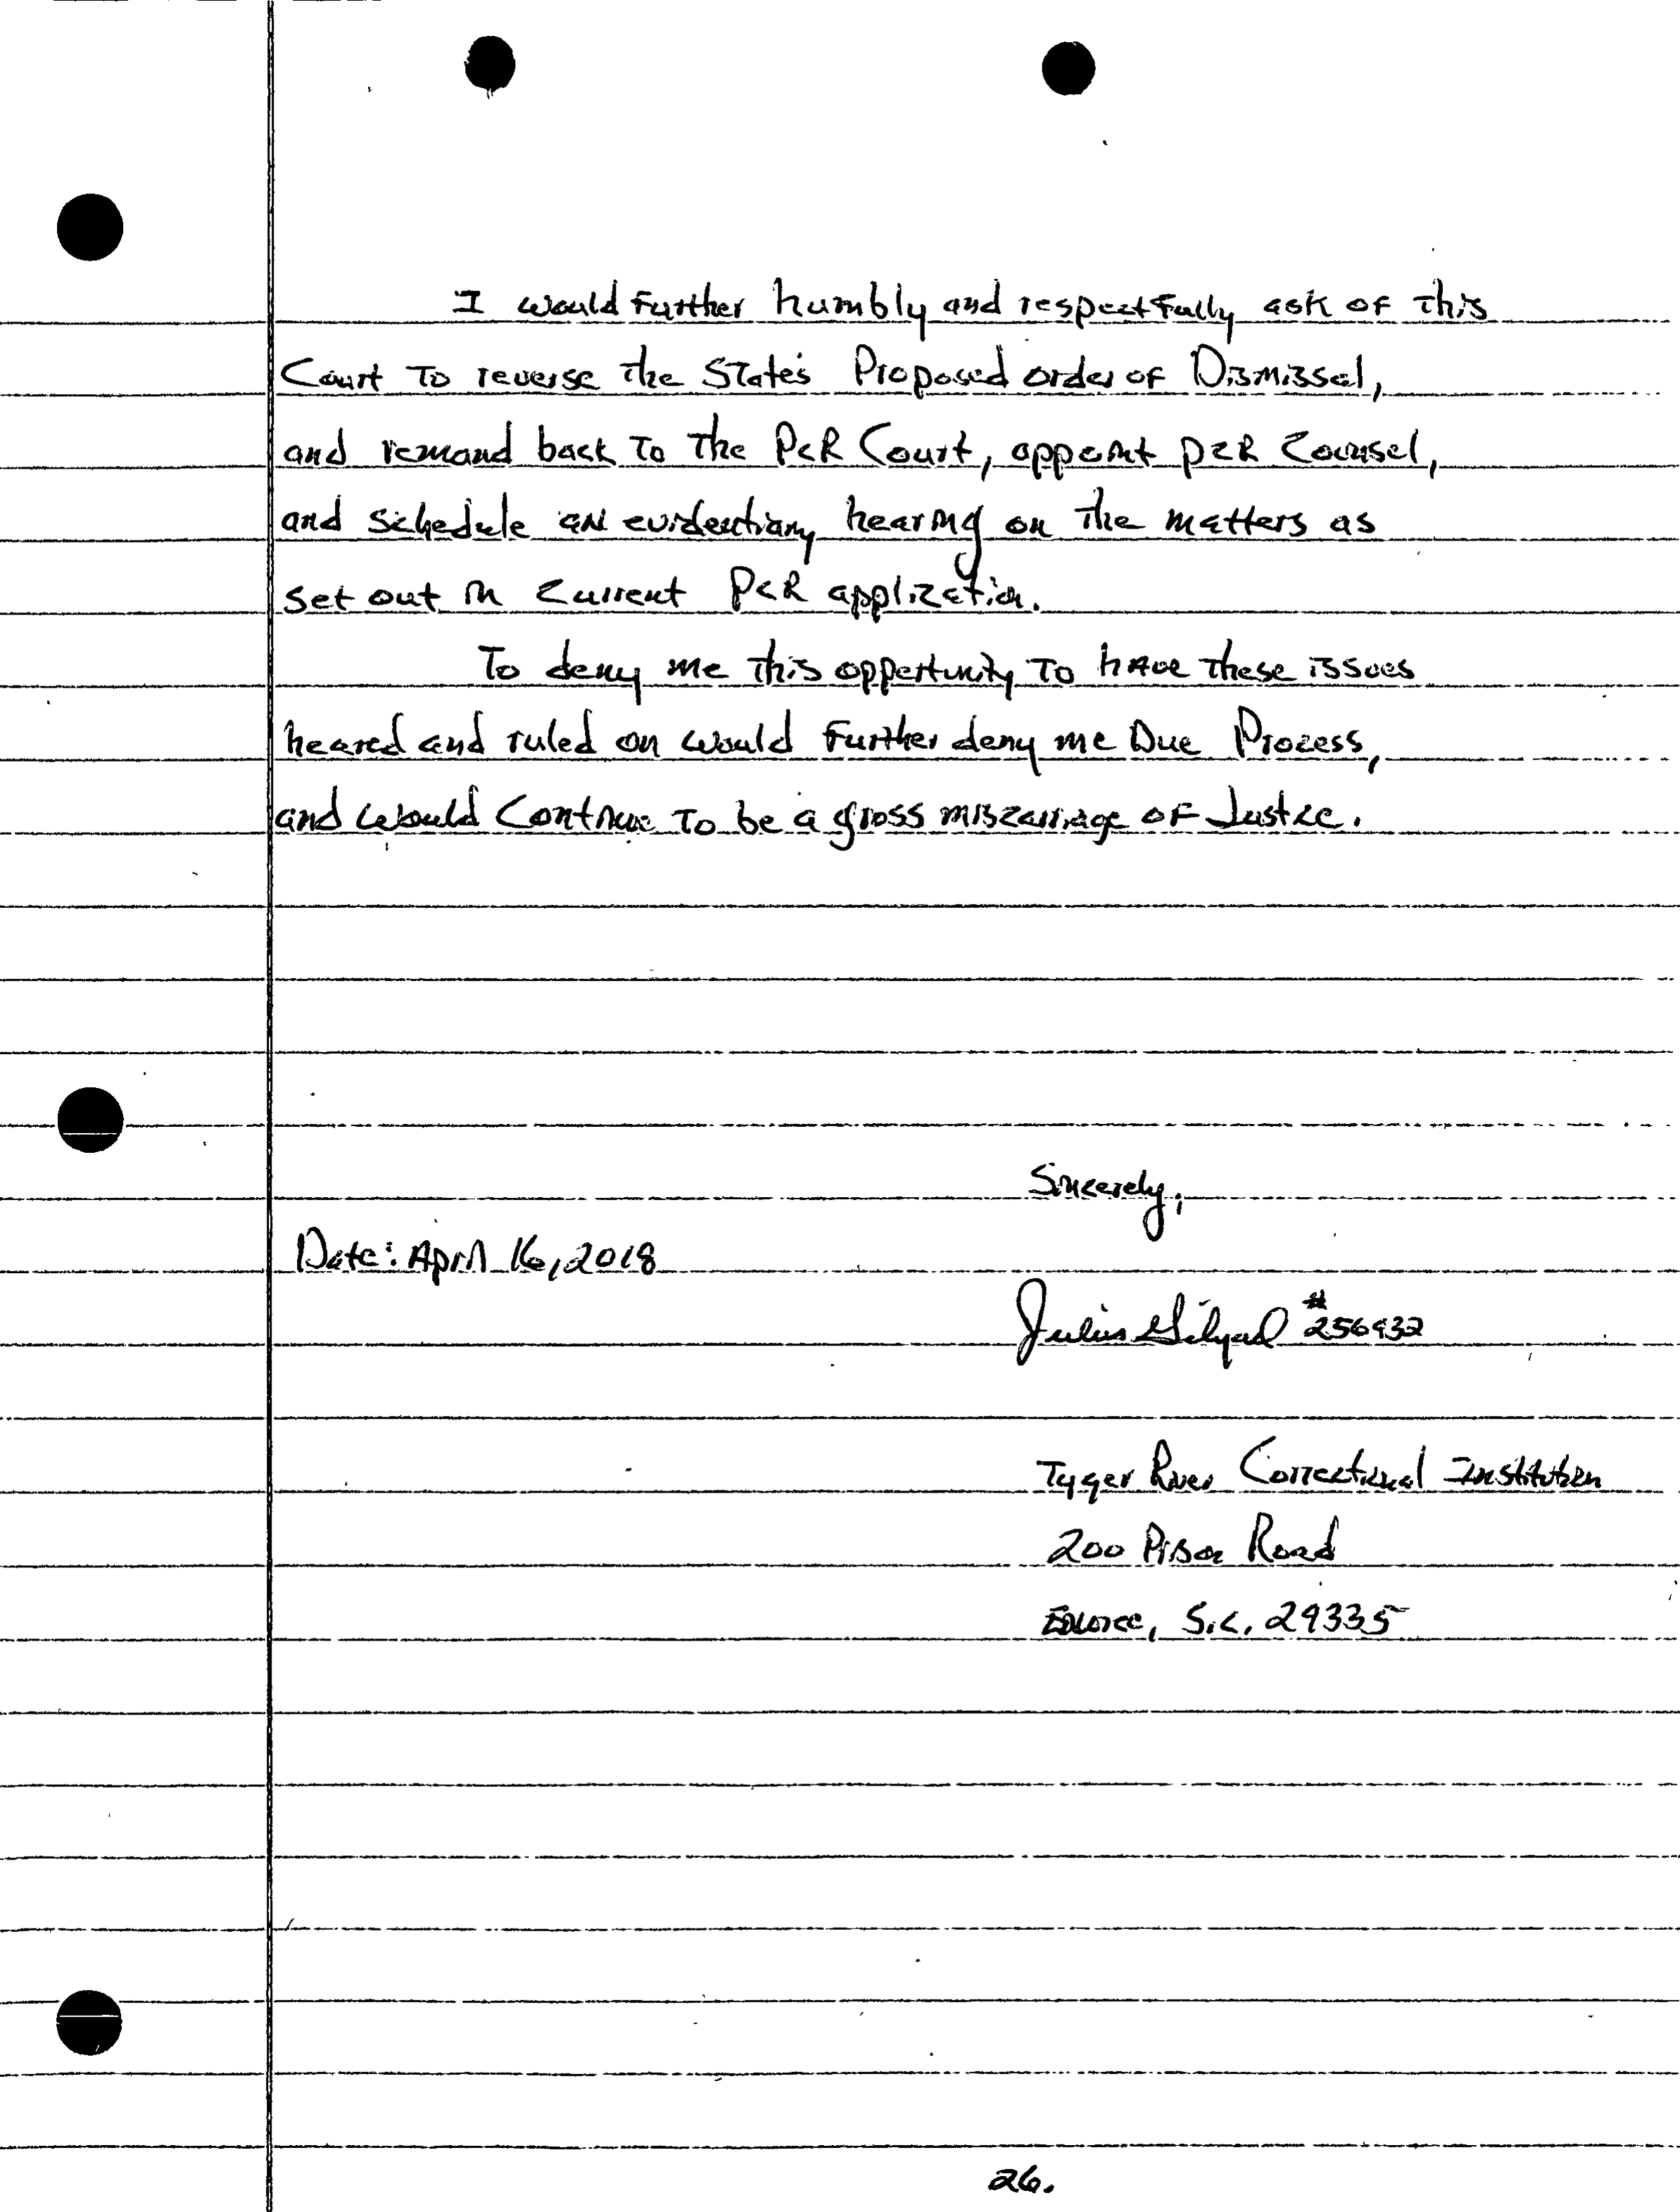 I would Further humbly and respectfully ask of This
Court To reverse the State's Proposed order of Dismissal,
and remand back To The PCR Court, appoint PCR Counsel,
and schedule an evidentiary hearing on The matters as
set out in current PCR application.
To deny me this oppertunity To have these issues
heared and ruled on would Further deny me Due Process,
and would Continue To be a gross miscarriage of Justice.
Sincerely,
Date: April 16, 2018
Julius Gilyard #256432
Tyger River Correctional Institution
200 Prison Road
Enoree, S.C. 29335
26.